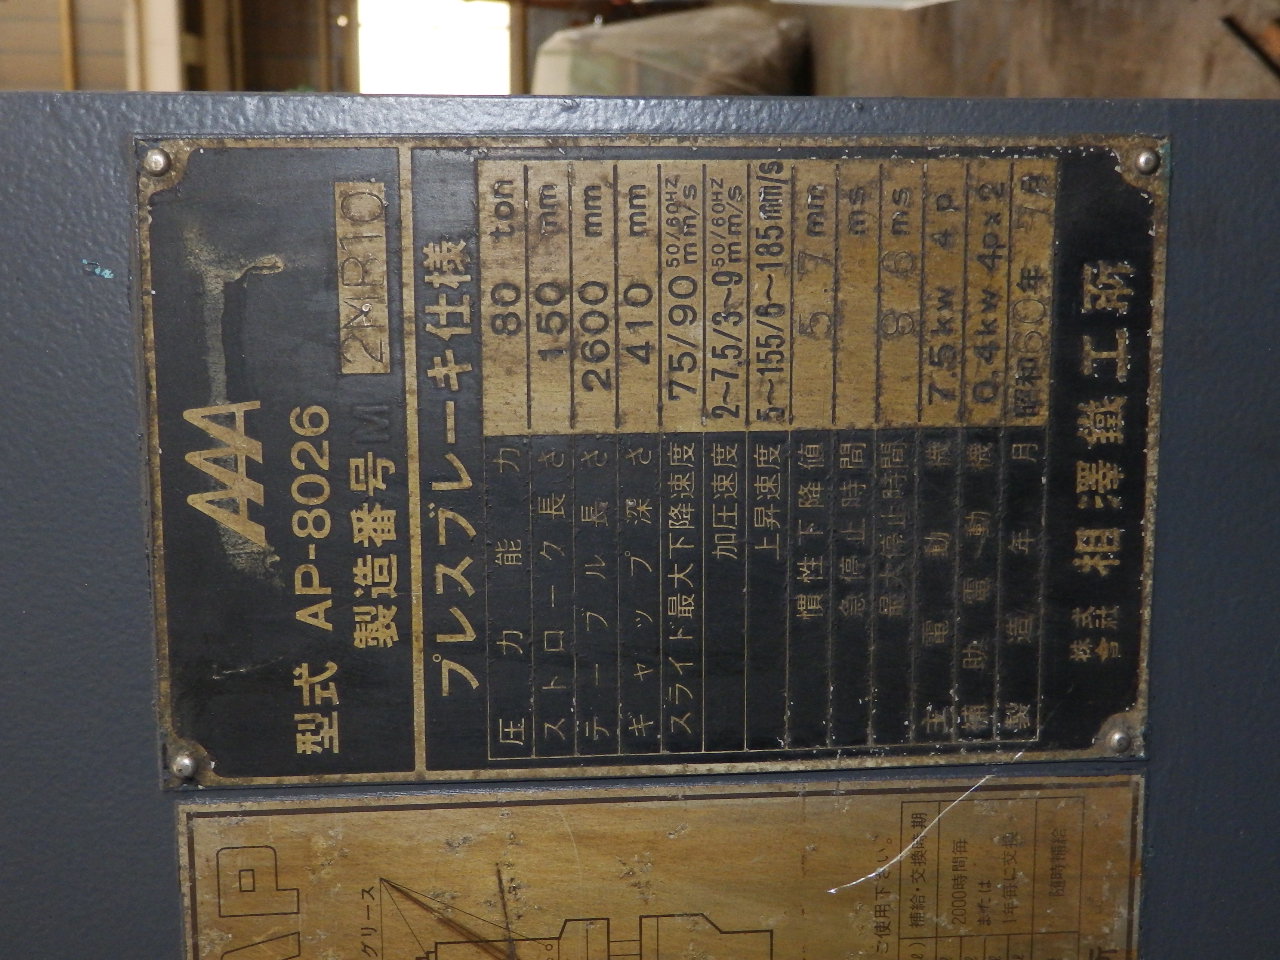 型式 AP-8026
製造番号M 2MR10
プレスブレーキ仕様
圧力能力 80 ton
ストローク長さ 150 mm
テーブル長さ 2600 mm
ギャップ深さ 410 mm
スライド最大下降速度 75/90 50/60HZ mm/s
加圧速度 2~7.5/3~9 50/60HZ mm/s
上昇速度 5~155/6~185mm/s
慣性下降値 57 mm
急停止時間 ms
最大停止時間 86 ms
主電動機 7.5kw 4P
補助電動機 0.4kw 4P×2
製造年月 昭和60年 7月
株式会社 相澤鐵工所
AP
グリース
ご使用下さい。
補給・交換時期
2000時間毎
または
1年毎に交換
随時補給
所